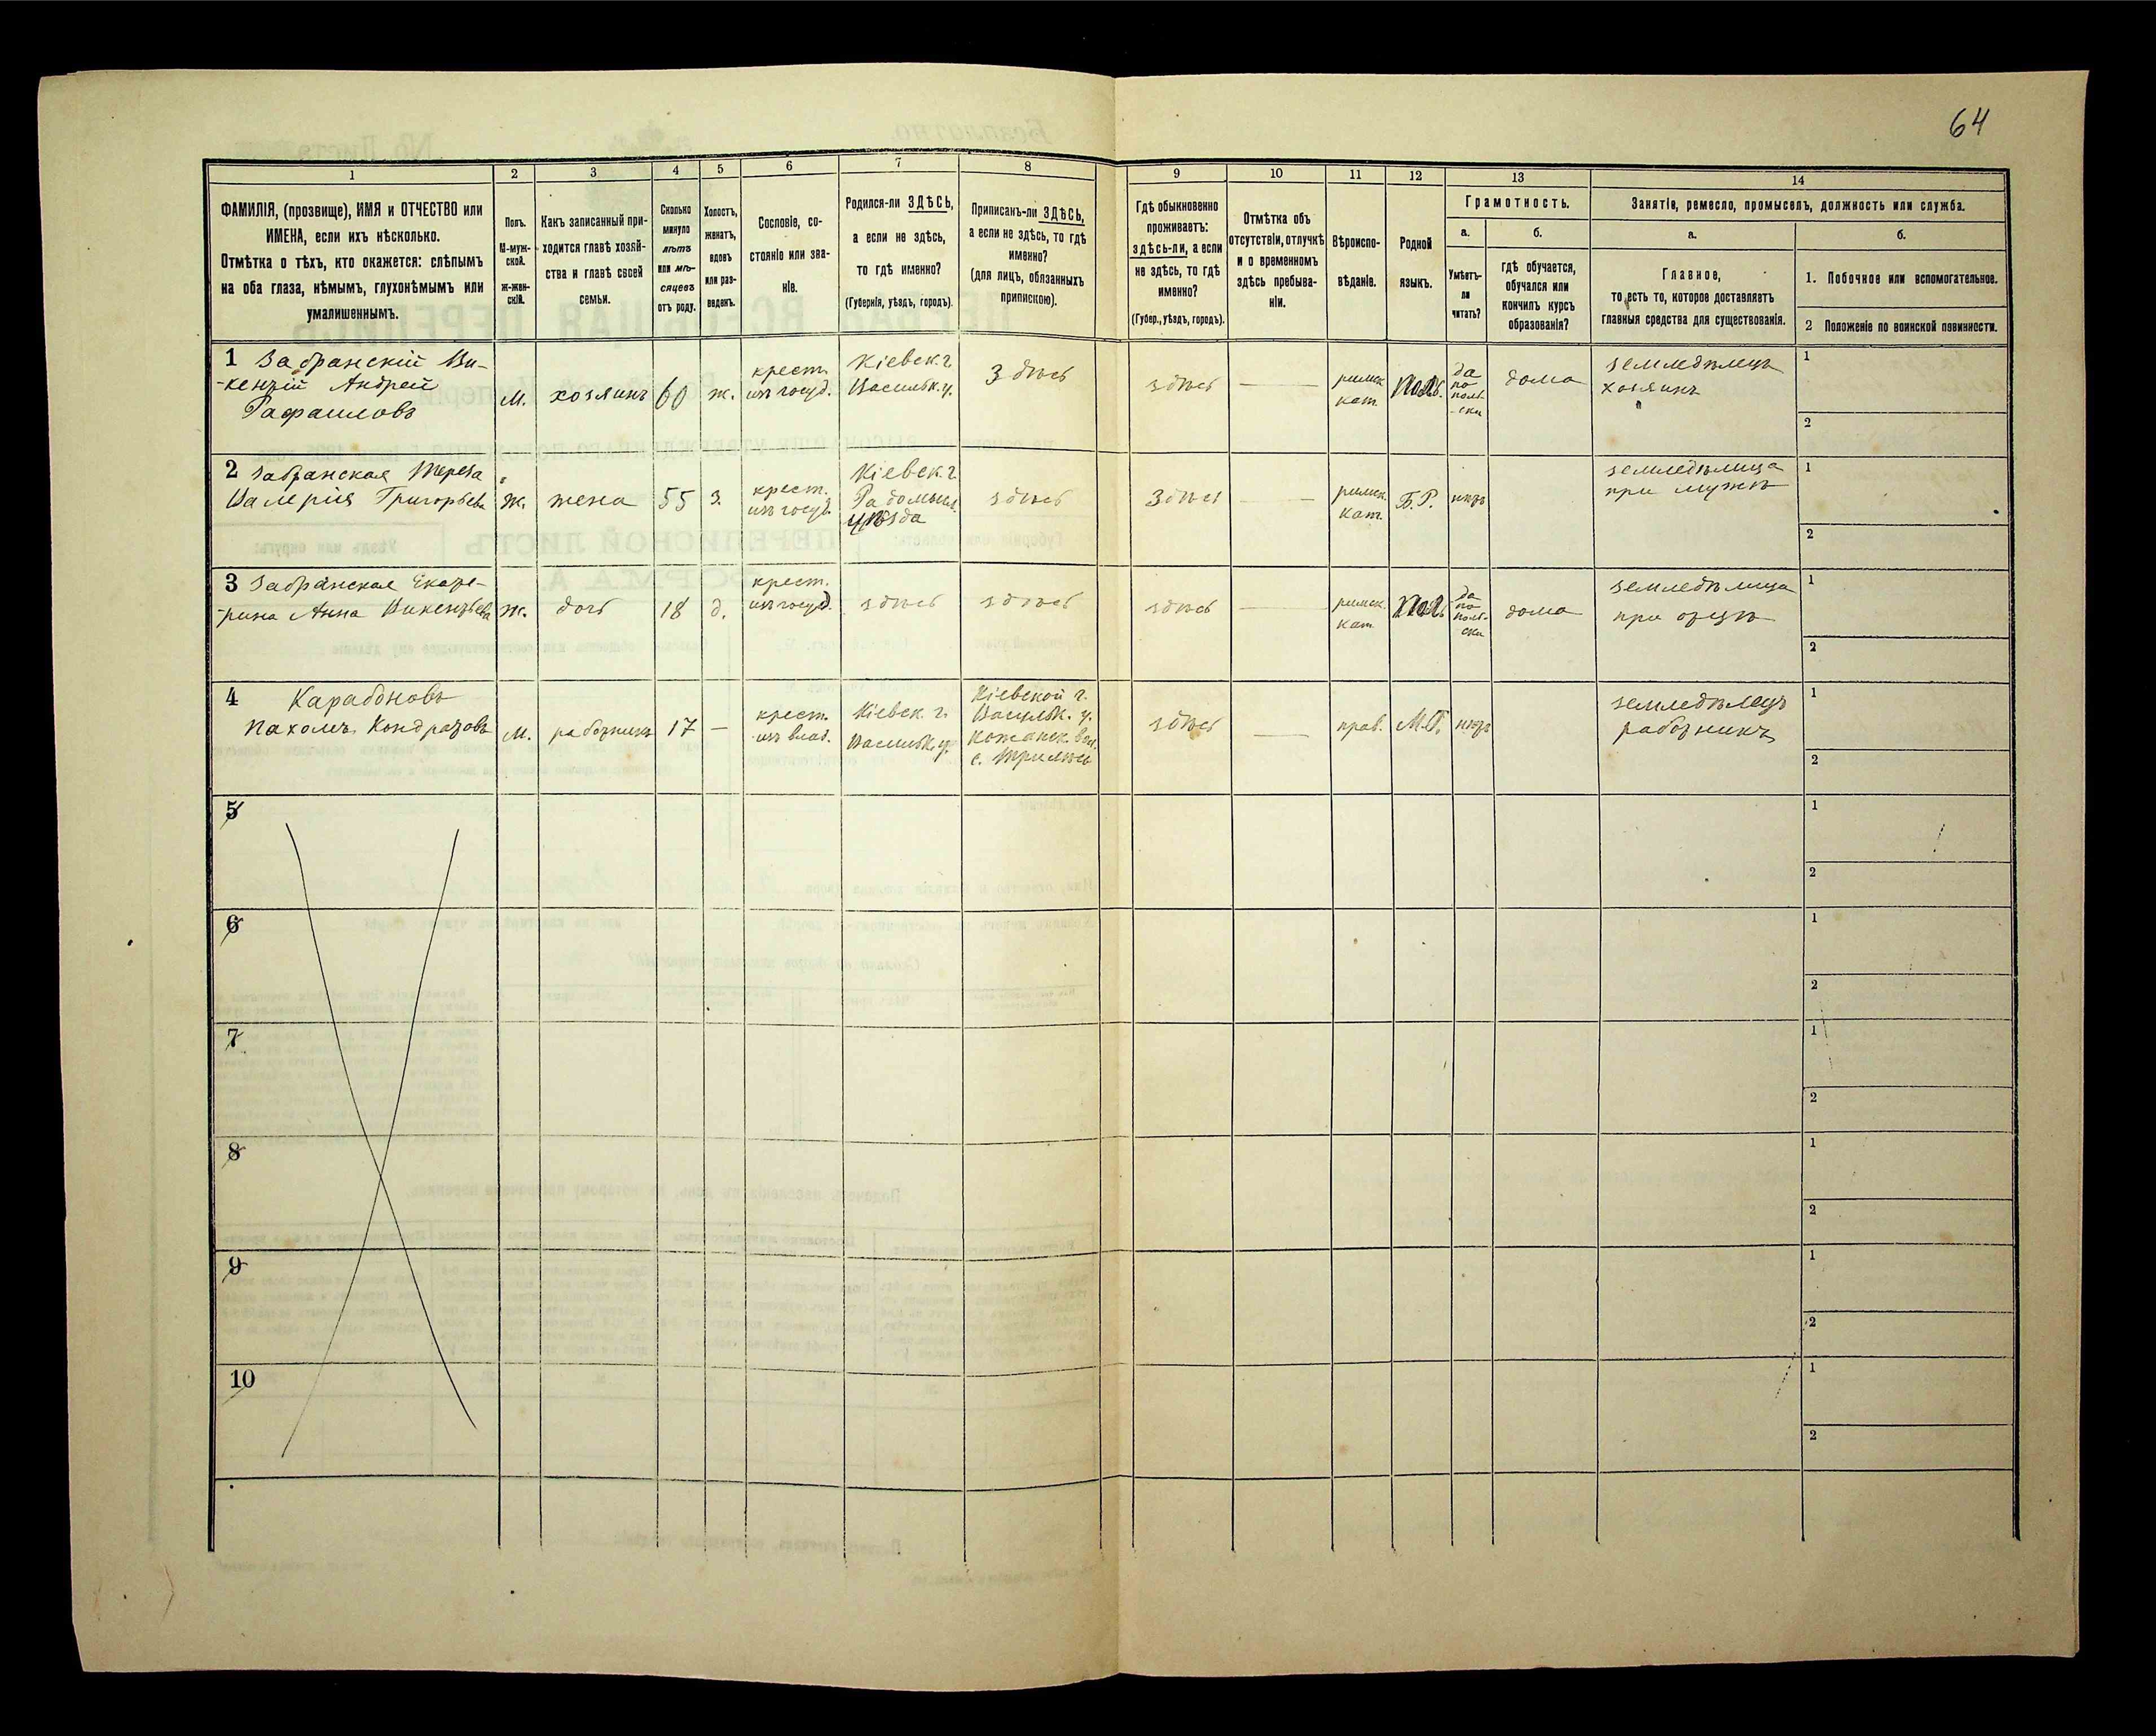 64
1
2
3
4
5
6
7
8
9
10
11
12
13
14
ФАМИЛІЯ, (прозвище), ИМЯ и ОТЧЕСТВО или
ИМЕНА, если ихъ нѣсколько.
Отмѣтка о тѣхъ, кто окажется: слѣпымъ
на оба глаза, нѣмымъ, глухонѣмымъ или
умалишеннымъ.
Полъ.
М-муж-
ской.
Ж-жен-
скій.
Какъ записанный при-
ходится главѣ хозяй-
ства и главѣ своей
семьи.
Сколько
минуло
лѣтъ
или мѣ-
сяцевъ
отъ роду.
Холостъ,
женатъ,
вдовъ
или раз-
веденъ.
Сословіе, со-
стояніе или зва-
ніе.
Родился-ли ЗДѢСЬ,
а если не здѣсь,
то гдѣ именно?
(Губернія, уѣздъ, городъ).
Приписанъ-ли ЗДѢСЬ,
а если не здѣсь, то гдѣ
именно?
(для лицъ, обязанныхъ
припискою).
Гдѣ обыкновенно
проживаетъ:
здѣсь-ли, а если
не здѣсь, то гдѣ
именно?
(Губер., уѣздъ, городъ).
Отмѣтка объ
отсутствіи, отлучкѣ
и о временномъ
здѣсь пребыва-
ніи.
Вѣроиспо-
вѣданіе.
Родной
языкъ.
Грамотность.
а.
Умѣетъ-
ли
читать?
б.
гдѣ обучается,
обучался или
кончилъ курсъ
образованія?
Занятіе, ремесло, промыселъ, должность или служба.
а.
Главное,
то есть то, которое доставляетъ
главныя средства для существованія.
б.
1. Побочное или вспомогательное.
2 Положеніе по воинской повинности.
1 Забранскій Ви-
-кентій Андрей
Рафаиловъ
М.
хозяинъ
60
ж.
крест.
изъ госуд.
Кіевск. г.
Васильк. у.
Здѣсь
здѣсь
римск.
кат.
Поль.
да
по
поль-
-ски
дома
земледѣлецъ
хозяинъ
1
2
2 Забранская Тереза
Валерія Григорьева
Ж.
жена
55
з.
крест.
изъ госуд.
Кіевск. г.
Радомысл.
уѣзда
здѣсь
Здѣсь
римск.
кат.
Б.Р.
нѣтъ
земледѣлица
при мужѣ
1
2
3 Забранская Екате-
-рина Анна Викентьева
Ж.
дочь
18
д.
крест.
изъ госуд.
здѣсь
здѣсь
здѣсь
римск.
кат.
Поль
да
по
поль-
ски
дома
земледѣлица
при отцѣ
1
2
4 Карабоновъ
Пахомъ Кондратовъ
М.
работникъ
17
—
крест.
изъ влад.
Кіевск. г.
Васильк. у.
Кіевской г.
Васильк. у.
Кожанск. вол.
с. Трилѣсы
здѣсь
прав.
М.Р.
нѣтъ
земледѣлецъ
работникъ
1
2
5
1
2
6
1
2
7
1
2
8
1
2
9
1
2
10
1
2